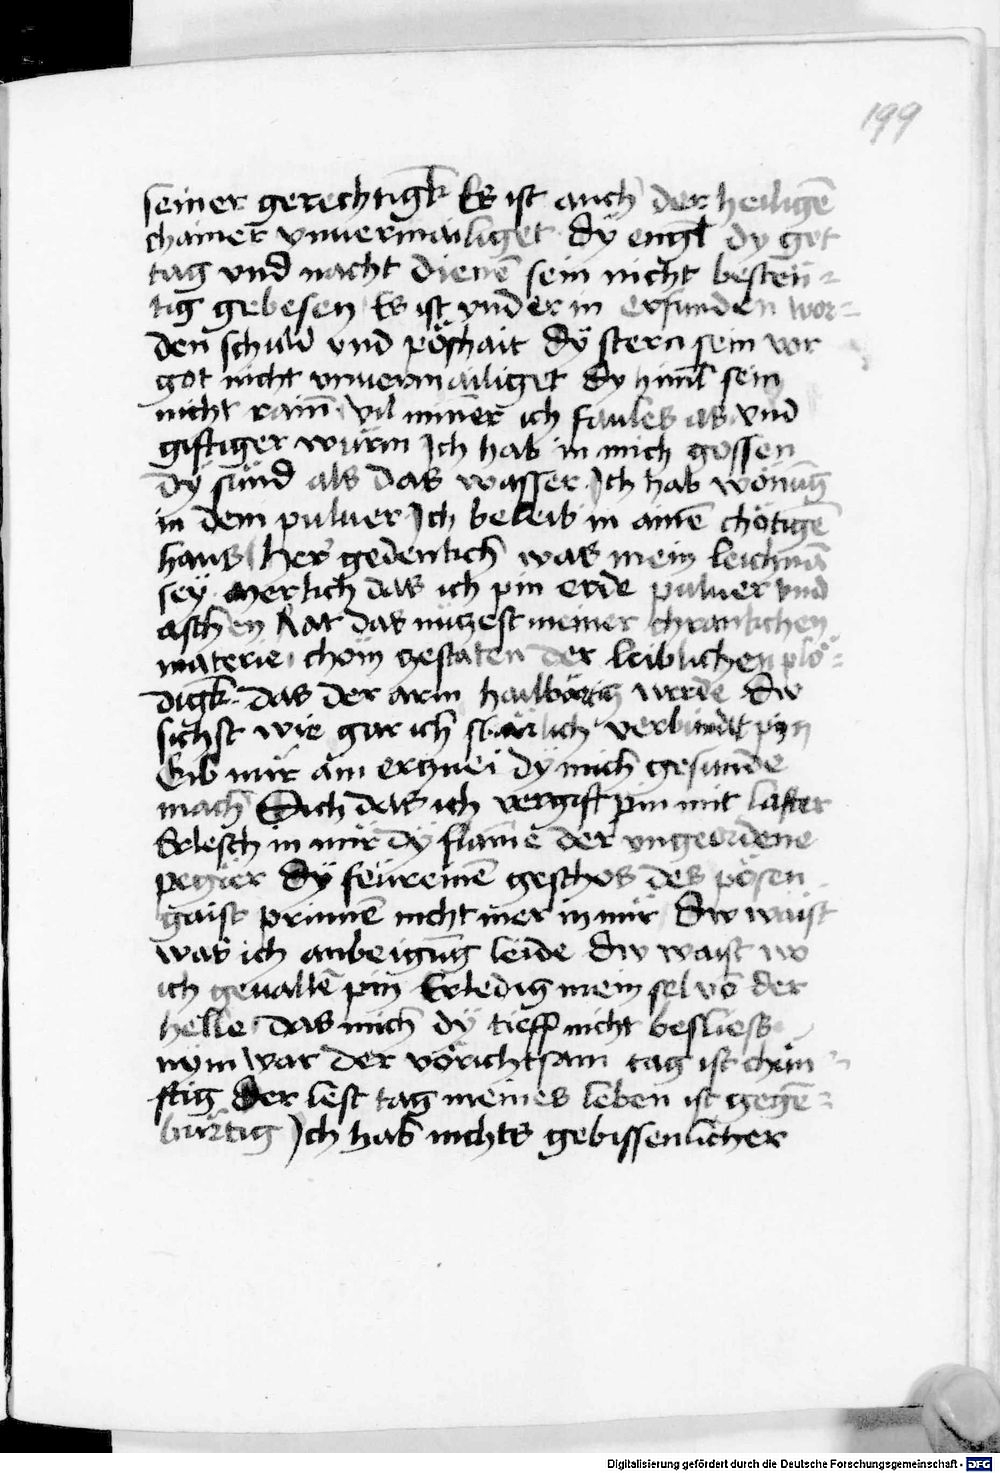 199
seiner gerechtigk̄ Es ist auch der heiligē
chainer vnuermailiget dÿ engl̄ dy got
tag vnd nacht dienē sein nicht besten-
tig gebesen Es ist vnder in erfunden wor-
den schuld vnd pöshait dÿ stern sein vor
got nicht vnuermailiget dy himl̄ sein
nicht rain vil miner ich faules as vnd
giftiger würm Ich hab in mich gossen
dÿ sünd als das wasser Ich hab wönūg
in dem puluer Ich beleib in ainē chötigē
haus Her gedenkch was mein leichnā
sey merkch das ich pin erde puluer vnd
aschen Rat das nützest meiner chrankchen
materie chöm zestaten der leiblichen plö-
digk̄ das der arm hailbörtig werde Dw
sichst wie gar ich sbärlich verbundt pin
Gib mir ain ertznei dÿ mich gesunde
mach Sich das ich vergift pin mit laster
Erlesch in mir dÿ flāme der vngeordene
pegier dÿ feüreinē geschos des pösen
gaist prinnē nicht mer in mir Dw waist
was ich anbeigūg leide dw waist wo
ich geuallē pin Erledig mein sel vō der
helle das mich dÿ tieff nicht besliess
nym war der vörichtsam tag ist chün-
ftig der lest tag meines leben ist gegē-
bürtig Ich hab nichts gebissenlicher
Digitalisierung gefördert durch die Deutsche Forschungsgemeinschaft - DFG